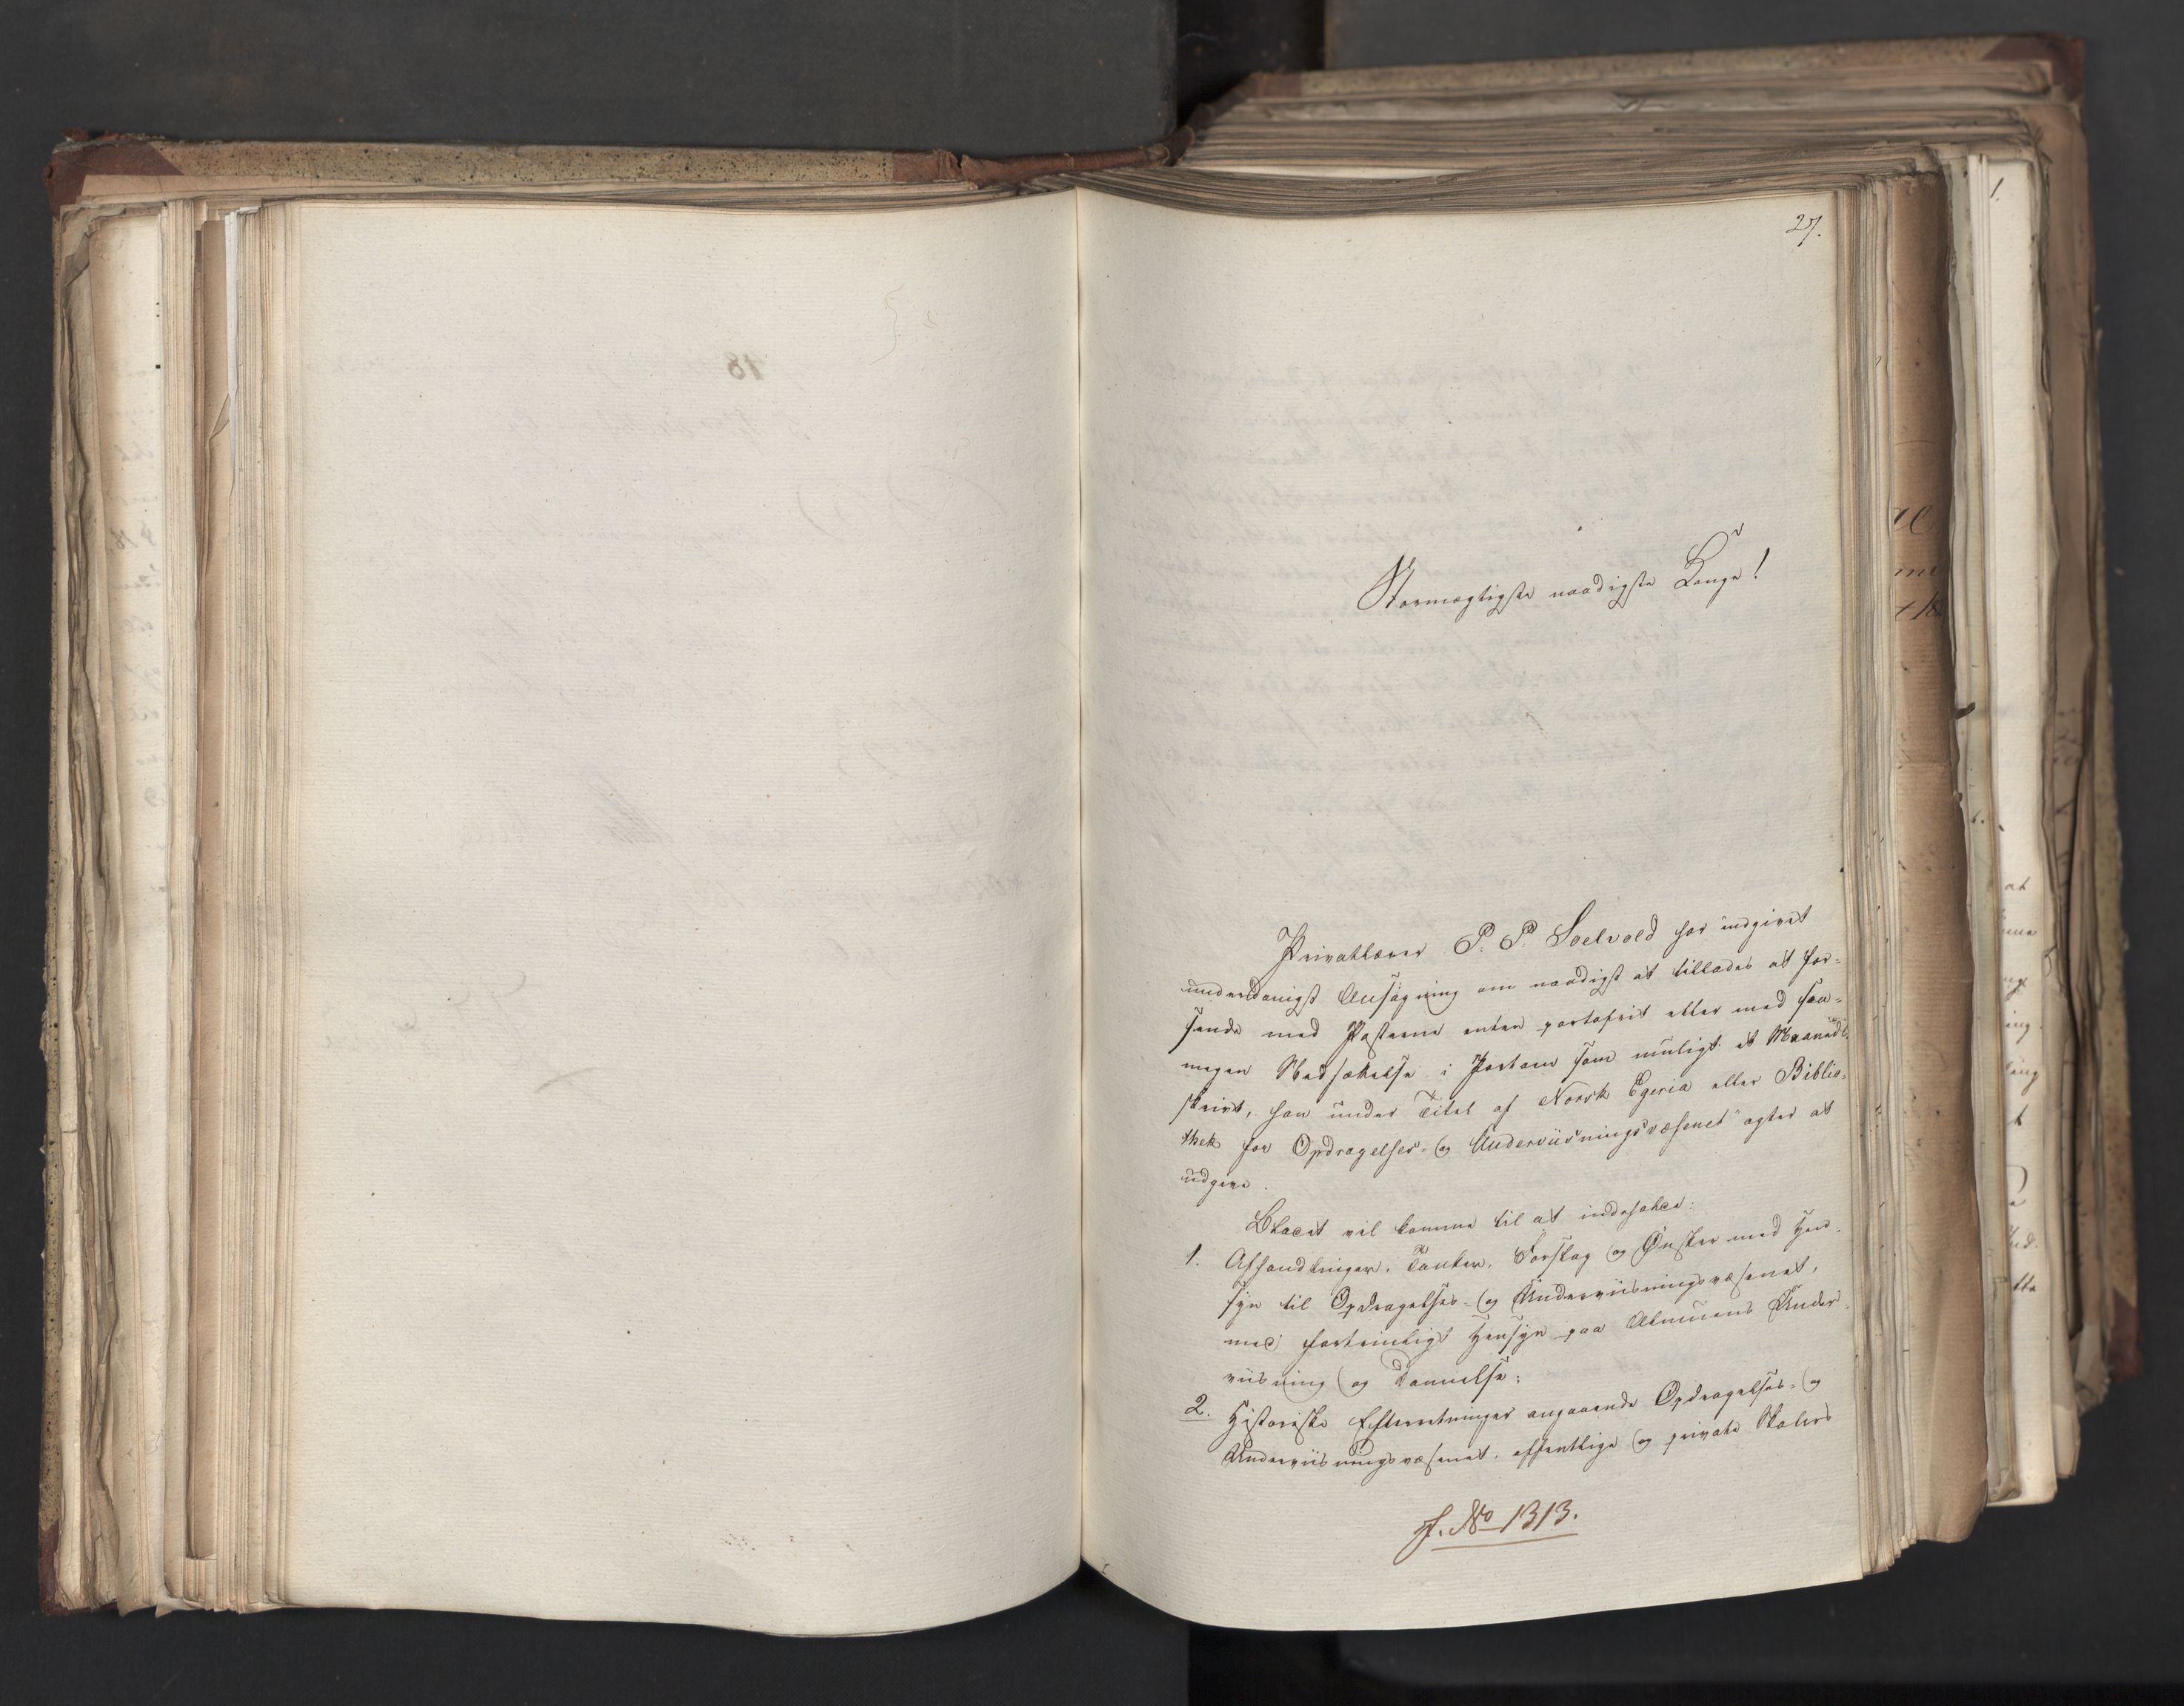 27.
Stormægtigste naadigste Konge!
Privatlærer P. P. Soelvold har indgivet
underdanigst Ansøgning om naadigst at tillades at for-
sende med Posterne enten portofrit eller med saa-
megen Nedsættelse i Portoen som muligt et Maaneds-
skrivt, han under Titel af Norsk Egeria eller Biblio-
thek for Opdragelses- og Underviisningsvæsenet" agter at
udgive.
Bladet vil komme til at indeholde:
1. Afhandlinger, Tanker, Forslag og Ønsker med Hen-
syn til Opdragelses- og Underviisningsvæsenet,
med fortrinligt Hensyn paa Almuens Under-
viisning og Dannelse;
2. Historiske Efterretninger angaaende Opdragelses- og
Underviisningsvæsenet, offentlige og private Skolers
J. No 1313.
18
1.